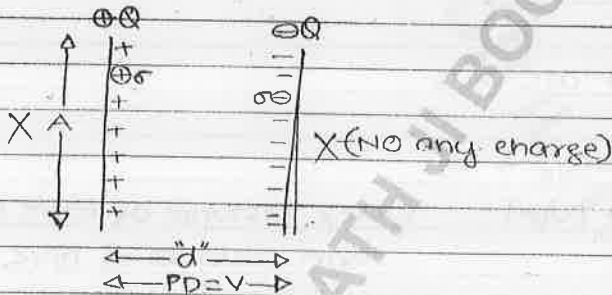 ⊕Q ⊖Q
+ –
⊕σ –
+ σ⊖
X A + – X (No any charge)
+ –
+ –
+ =
"d"
PD=V
ATH JI BOO